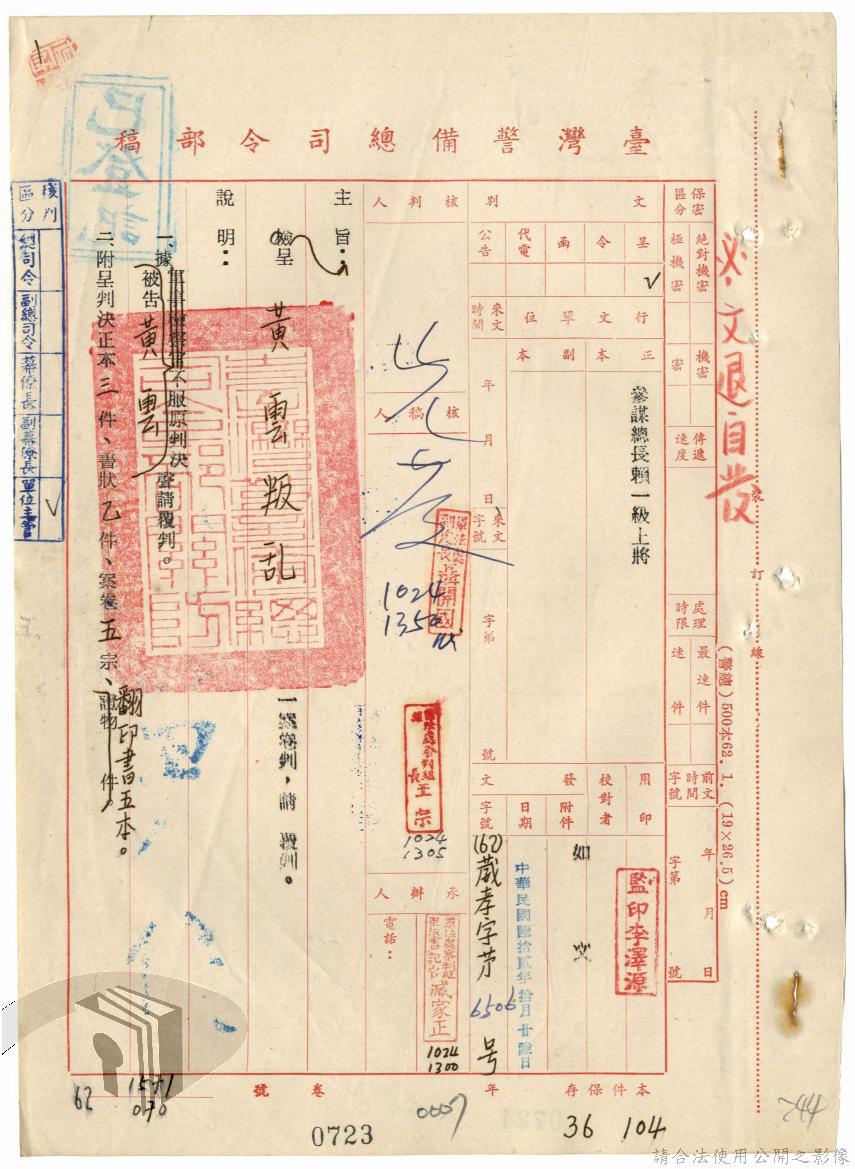 臺灣警備總司令部稿
保密區分
絕對機密
極機密
機密
密
傳遞速度
處理時限
最速件
速件
前文時間字號
年 月 日
字第 號
文別
呈
令
函
代電
公告
✓
行文單位
正本
副本
參謀總長賴一級上將
來文時間
年 月 日
來文字號
字第 號
用印
監印李澤源
校對者
發文
附件
如文
日期
中華民國陸拾貳年拾月廿陸日
字號
(62)葳孝字第6506号
核判人
核稿人
1024
1350
王宗
1024
1305
承辦人
電話：
臧家正
1024
1300
主旨：
檢呈黃雲叛乱一案卷判，請覆判。
說明：
一、據
被告黃雲
不服原判決聲請覆判。
二、附呈判決正本三件、書狀乙件、案卷五宗、證物 件。
翻印書五本。
核判區分
總司令
副總司令
幕僚長
副幕僚長
單位主管
✓
已登記
發文退自發
裝 訂 線
(警總)500本62.1.(19×26.5)cm
本件保存 年
卷 號
104
36
0007
0723
62
1571
070
244
請合法使用公開之影像